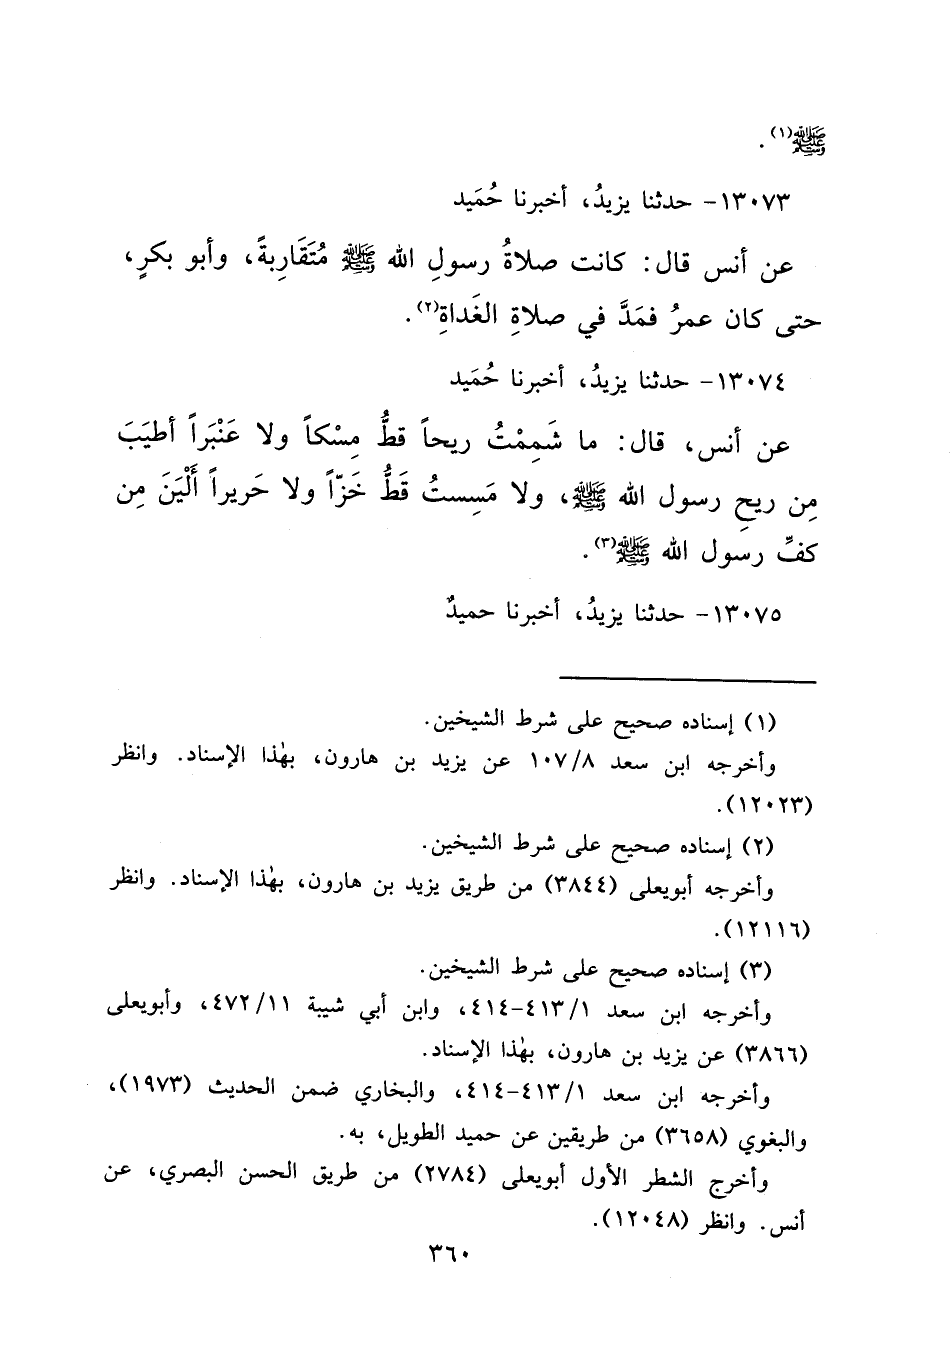 ﷺ(١).
١٣٠٧٣- حدثنا يزيدُ، أخبرنا حُمَيد
عن أنس قال: كانت صلاةُ رسولِ الله ﷺ مُتَقَارِبةً، وأبو بكرٍ،
حتى كان عمرُ فمَدَّ في صلاةِ الغَداةِ(٢).
١٣٠٧٤- حدثنا يزيدُ، أخبرنا حُمَيد
عن أنس، قال: ما شَمِمْتُ ريحاً قطُّ مِسْكاً ولا عَنْبَراً أطيَبَ
مِن ريحِ رسول الله ﷺ، ولا مَسِستُ قَطُّ خَزّاً ولا حَريراً أَلْيَنَ مِن
كفِّ رسول الله ﷺ(٣).
١٣٠٧٥- حدثنا يزيدُ، أخبرنا حميدٌ
(١) إسناده صحيح على شرط الشيخين.
وأخرجه ابن سعد ١٠٧/٨ عن يزيد بن هارون، بهٰذا الإسناد. وانظر
(١٢٠٢٣).
(٢) إسناده صحيح على شرط الشيخين.
وأخرجه أبويعلى (٣٨٤٤) من طريق يزيد بن هارون، بهٰذا الإسناد. وانظر
(١٢١١٦).
(٣) إسناده صحيح على شرط الشيخين.
وأخرجه ابن سعد ٤١٣/١-٤١٤، وابن أبي شيبة ٤٧٢/١١، وأبويعلى
(٣٨٦٦) عن يزيد بن هارون، بهٰذا الإسناد.
وأخرجه ابن سعد ٤١٣/١-٤١٤، والبخاري ضمن الحديث (١٩٧٣)،
والبغوي (٣٦٥٨) من طريقين عن حميد الطويل، به.
وأخرج الشطر الأول أبويعلى (٢٧٨٤) من طريق الحسن البصري، عن
أنس. وانظر (١٢٠٤٨).
٣٦٠